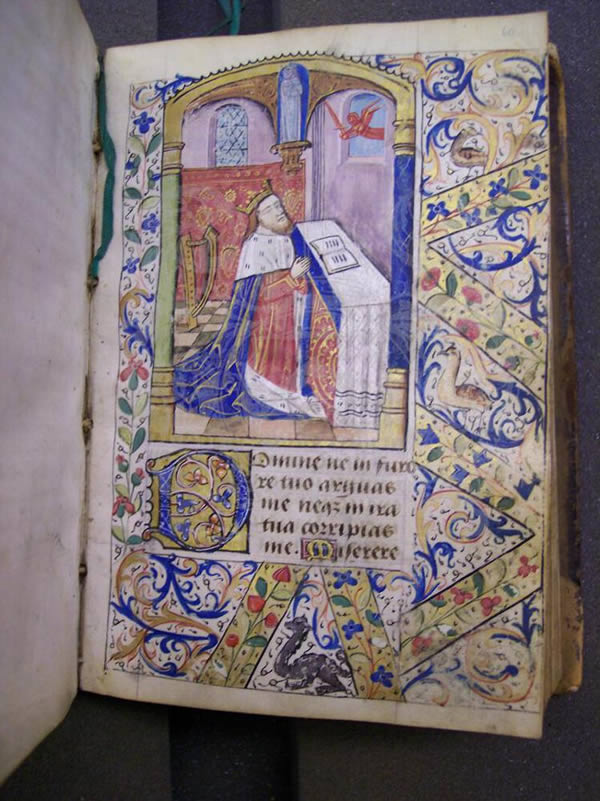 Domine ne in furo
re tuo arguas
me neqz in ira
tua corripias
me. Miserere